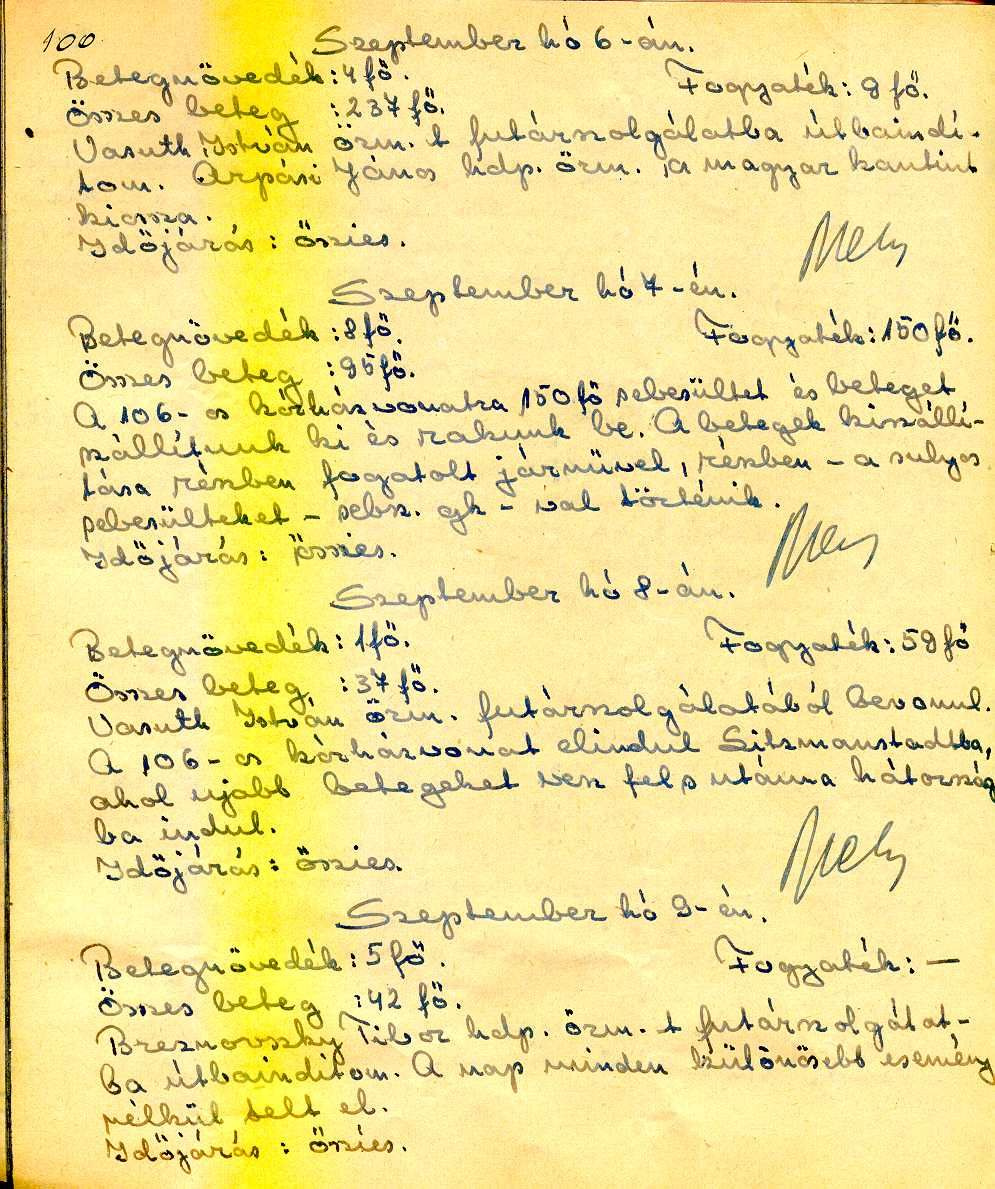 100
Szeptember hó 6-án.
Betegnövedék: 4 fő. Fogyaték: 9 fő.
Összes beteg : 237 fő.
Vasuth István őrm. t futárszolgálatba útbaindí-
tom. Árpási János hdp. őrm. a magyar kantint
kiossza.
Időjárás: őszies.
Szeptember hó 7-én.
Betegnövedék: 8 fő. Fogyaték: 150 fő.
Összes beteg : 95 fő.
A 106-os kórházvonatra 150 fő sebesültet és beteget
szállítunk ki és rakunk be. A betegek kiszállí-
tása részben fogatolt járművel, részben - a sulyos
sebesülteket - sebsz. gk-val történik.
Időjárás: őszies.
Szeptember hó 8-án.
Betegnövedék: 1 fő. Fogyaték: 59 fő
Összes beteg : 37 fő.
Vasuth István őrm. futárszolgálatából bevonul.
A 106-os kórházvonat elindul Litzmanstadtba,
ahol ujabb betegeket vesz fel s utánna hátország
ba indul.
Időjárás: őszies.
Szeptember hó 9-én.
Betegnövedék: 5 fő. Fogyaték: —
Összes beteg : 42 fő.
Breznovszky Tibor hdp. őrm. t futárszolgálat-
ba útbainditom. A nap minden különösebb esemény
nélkül telt el.
Időjárás: őszies.